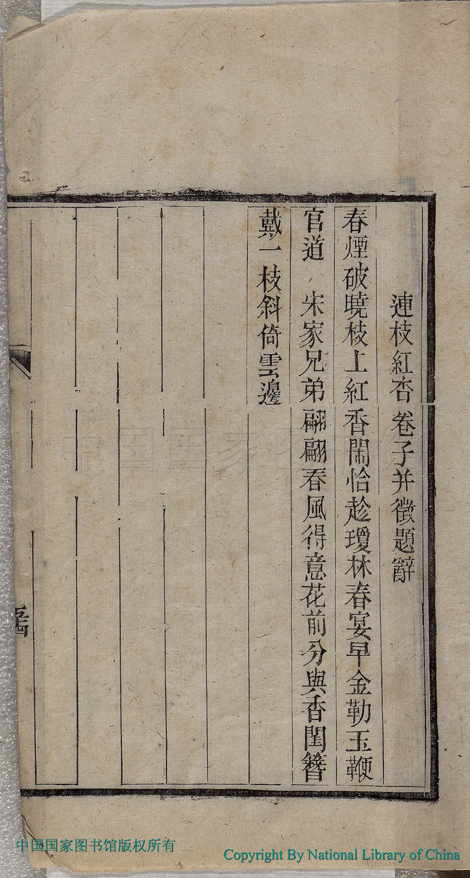 連枝紅杏卷子并徵題辭
春煙破曉枝上紅香閙恰趁瓊林春宴早金勒玉鞭
官道　宋家兄弟翩翩春風得意花前分與香閨簪
戴一枝斜倚雲邊
中国国家图书馆版权所有
Copyright By National Library of China